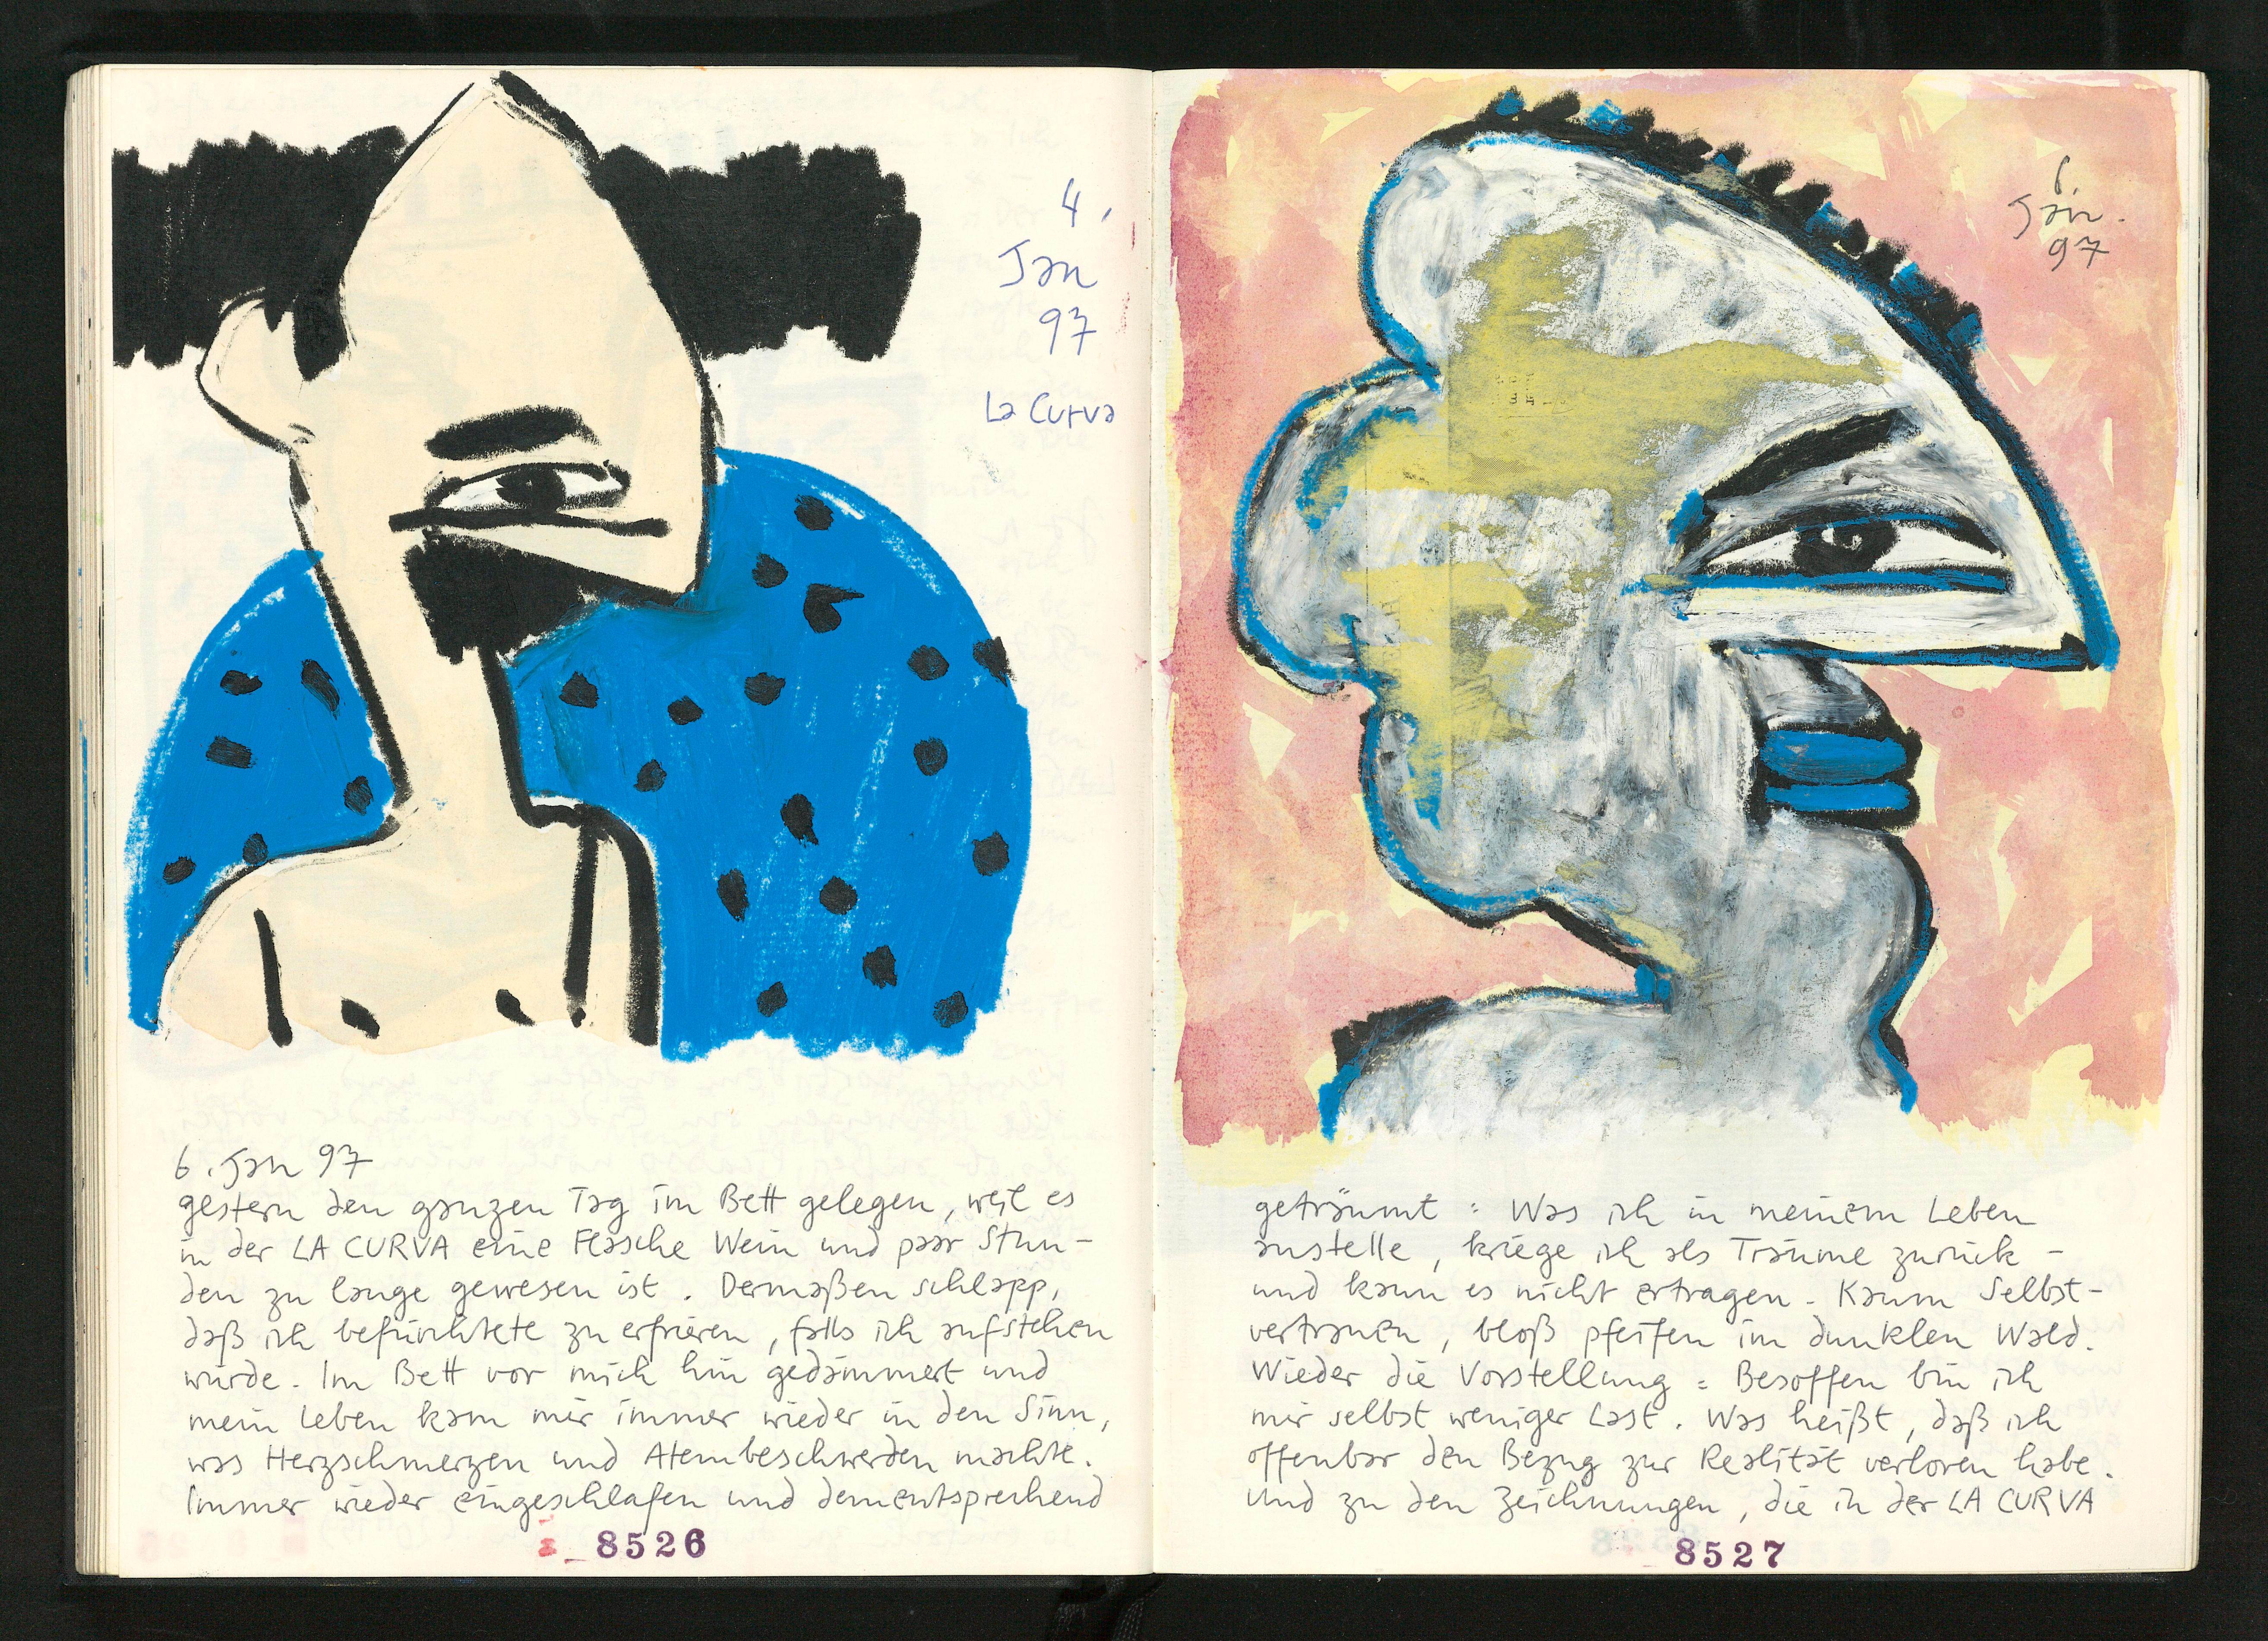 4.
Jan
97
La Curva
6. Jan 97
gestern den ganzen Tag im Bett gelegen, weil es
in der LA CURVA eine Flasche Wein und paar Stun-
den zu lange gewesen ist. Dermaßen schlapp,
daß ich befürchtete zu erfrieren, falls ich aufstehen
würde. Im Bett vor mich hin gedämmert und
mein Leben kam mir immer wieder in den Sinn,
was Herzschmerzen und Atembeschwerden machte.
Immer wieder eingeschlafen und dementsprechend
8526
6.
Jan.
97
geträumt: Was ich in meinem Leben
anstelle, kriege ich als Träume zurück -
und kann es nicht ertragen. Kaum Selbst-
vertrauen, bloß pfeifen im dunklen Wald.
Wieder die Vorstellung: Besoffen bin ich
mir selbst weniger Last. Was heißt, daß ich
offenbar den Bezug zur Realität verloren habe.
Und zu den Zeichnungen, die in der LA CURVA
8527